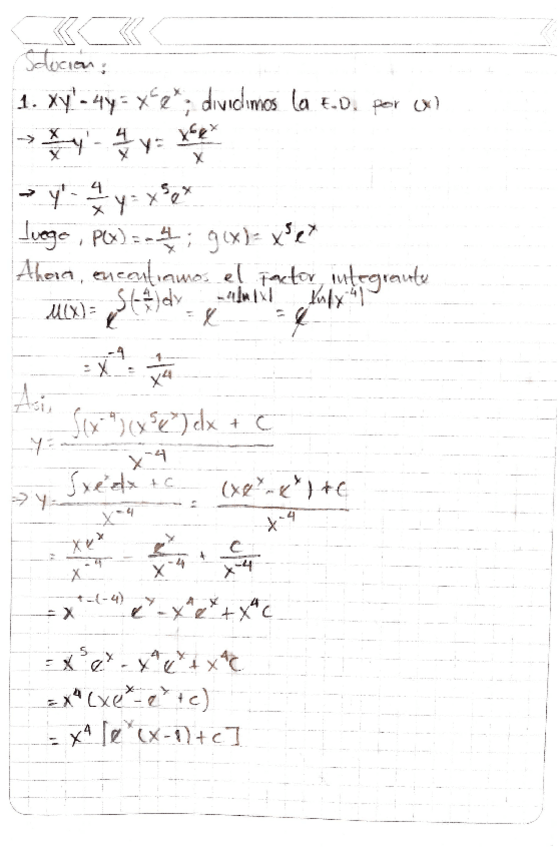 Solución:
1. xy' - 4y = x⁶eˣ; dividimos la E.D. por (x)
→ x/x y' - 4/x y = x⁶eˣ/x
→ y' - 4/x y = x⁵eˣ
luego, P(x) = -4/x; g(x) = x⁵eˣ
Ahora, encontramos el factor integrante
μ(x) = e^∫(-4/x)dx = e^-4ln|x| = e^ln|x⁻⁴|
= x⁻⁴ = 1/x⁴
Asi,
y = ∫(x⁻⁴)(x⁵eˣ)dx + C / x⁻⁴
⇒ y = ∫xeˣdx + c / x⁻⁴ = (xeˣ - eˣ) + c / x⁻⁴
= xeˣ/x⁻⁴ - eˣ/x⁻⁴ + c/x⁻⁴
= x^1-(-4) eˣ - x⁴eˣ + x⁴c
= x⁵eˣ - x⁴eˣ + x⁴c
= x⁴(xeˣ - eˣ + c)
= x⁴[eˣ(x-1) + c]